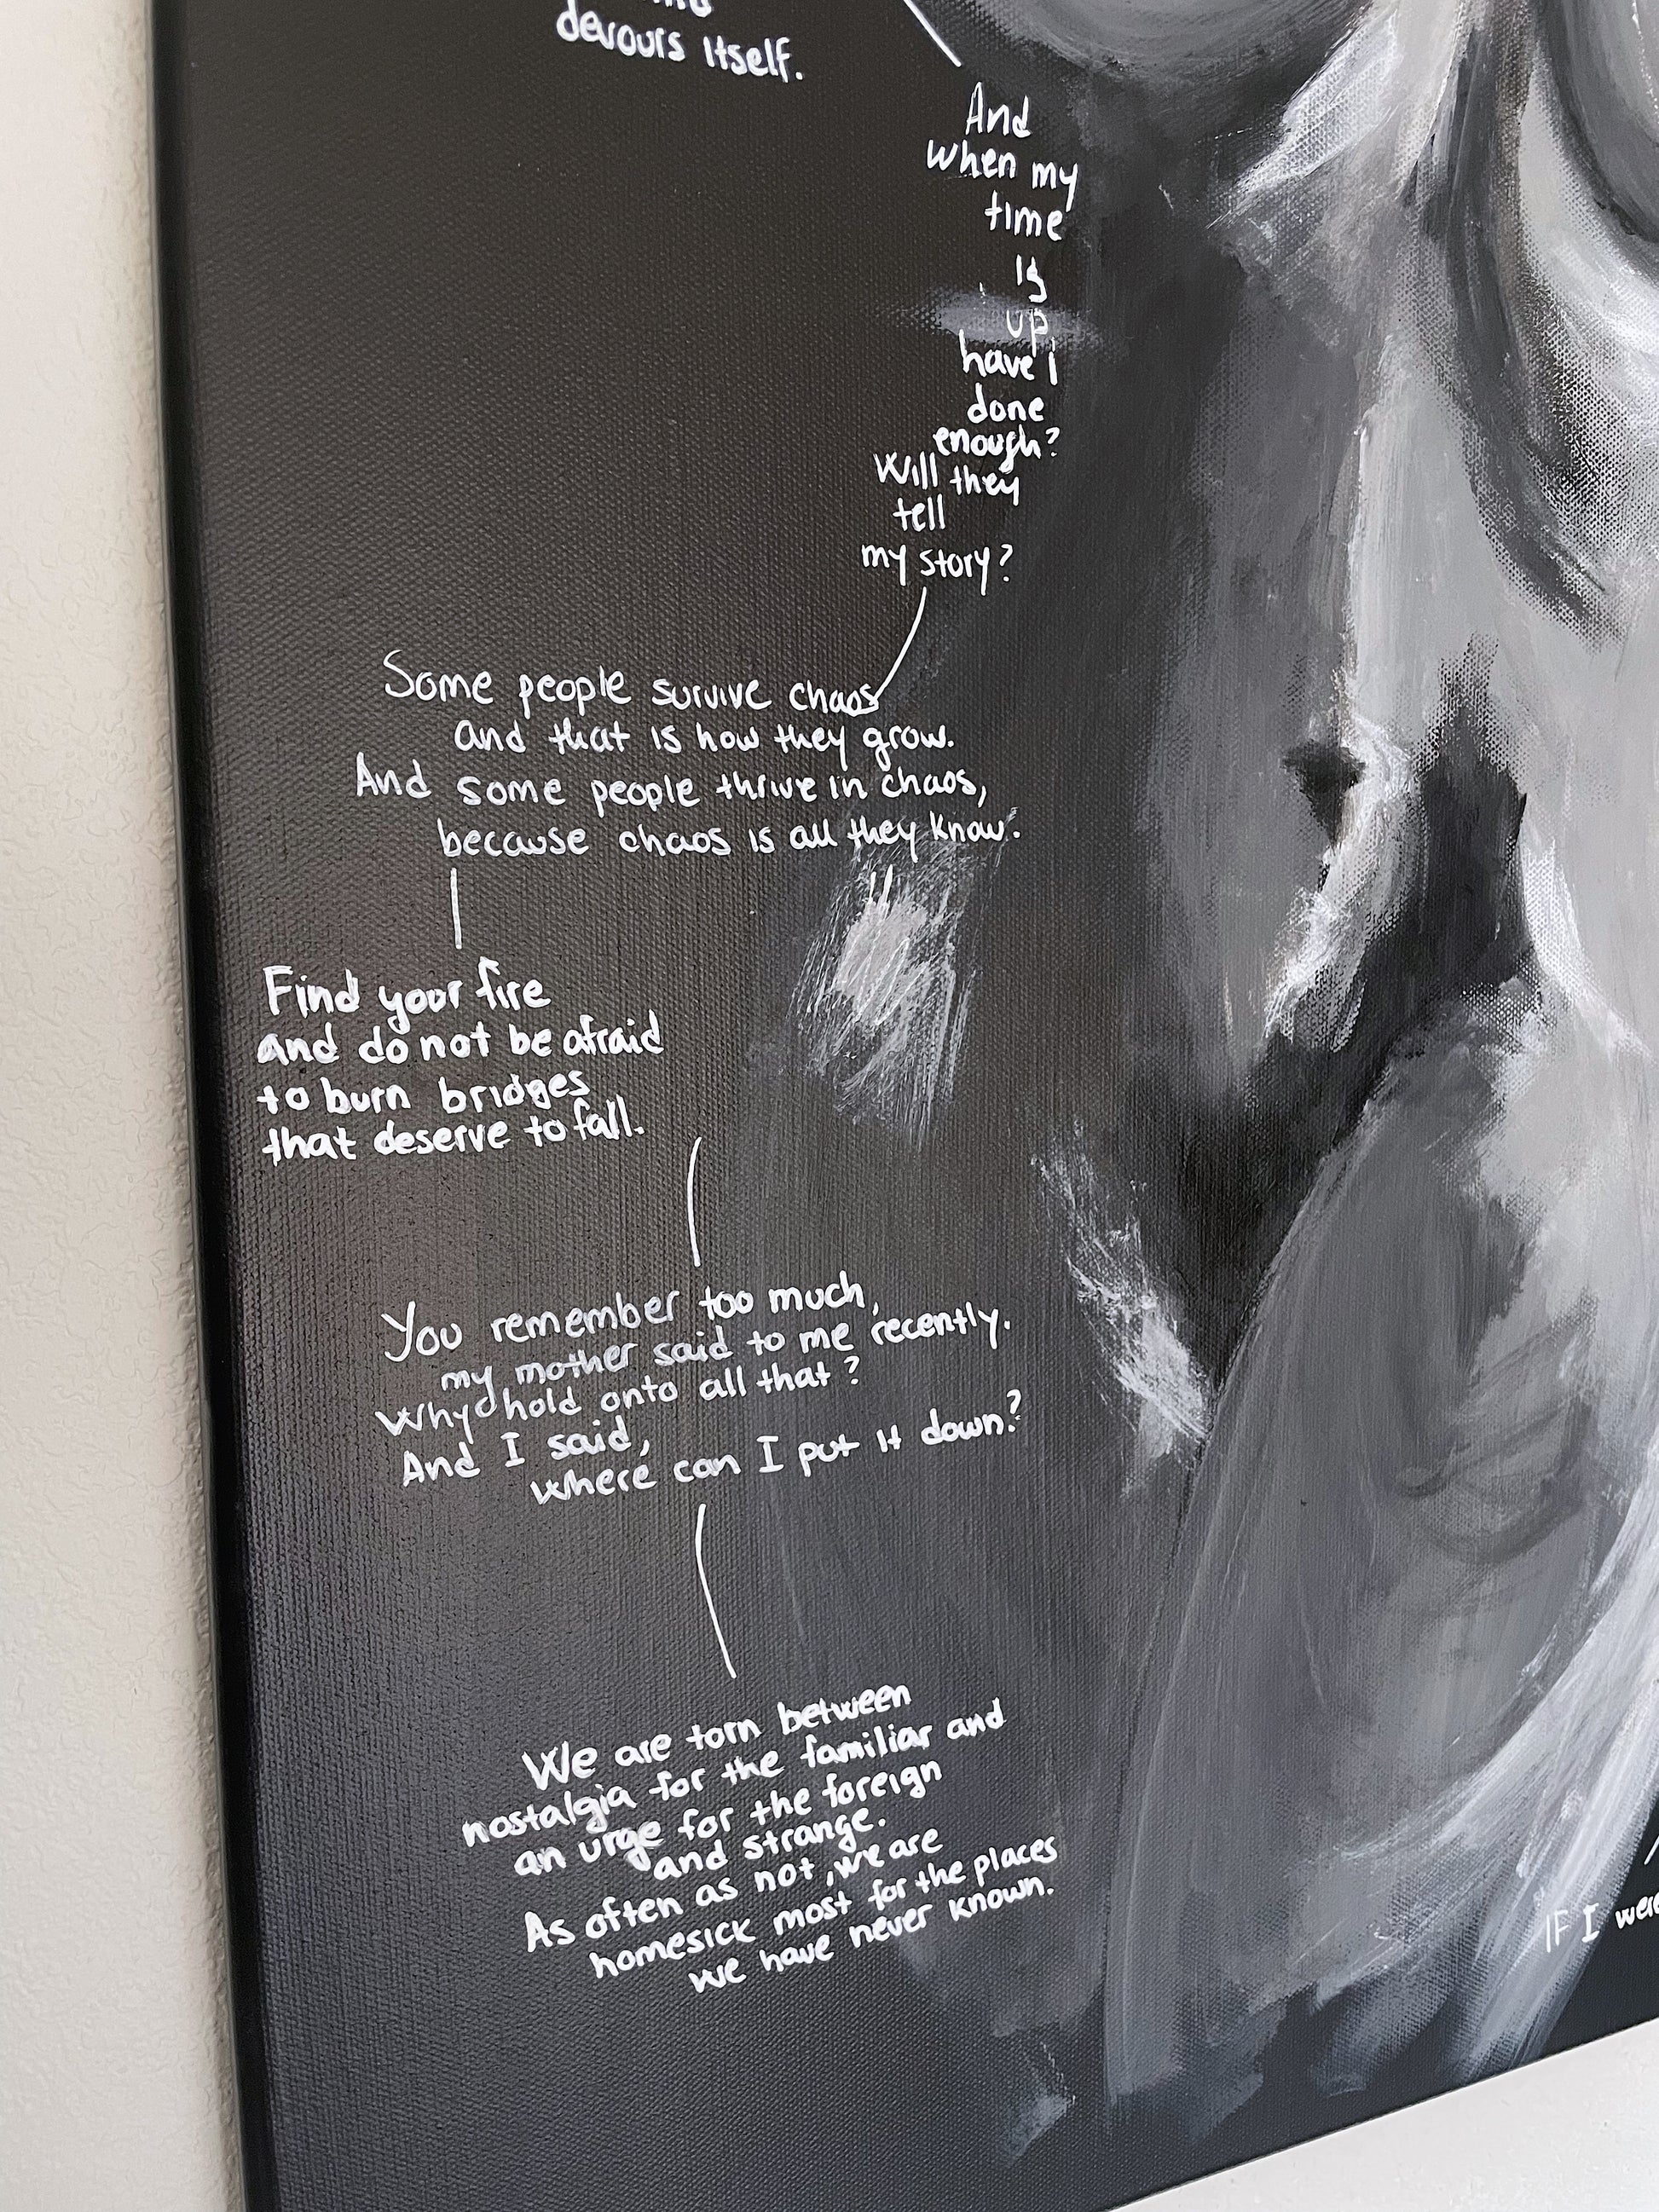 devours itself.
And
when my
time
is
up
have i
done
enough?
Will they
tell
my story?
Some people survive chaos
and that is how they grow.
And some people thrive in chaos,
because chaos is all they know.
Find your fire
and do not be afraid
to burn bridges
that deserve to fall.
You remember too much,
my mother said to me recently.
Why hold onto all that?
And I said,
where can I put it down?
We are torn between
nostalgia for the familiar and
an urge for the foreign
and strange.
As often as not, we are
homesick most for the places
we have never known.
IF I were